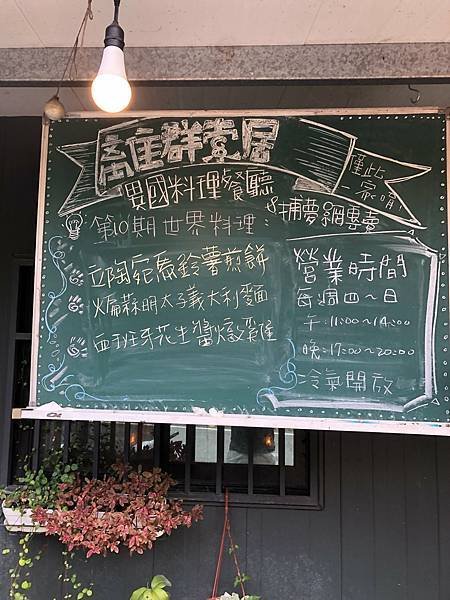 離群索居
異國料理餐聽
&捕夢網專賣
僅此
一家唷
第10期世界料理:
立陶宛馬鈴薯煎餅
火焗蒜明太子義大利麵
西班牙花生醬燉雞
營業時間
每週四~日
午:11:00~14:00
晚:17:00~20:00
冷氣開放